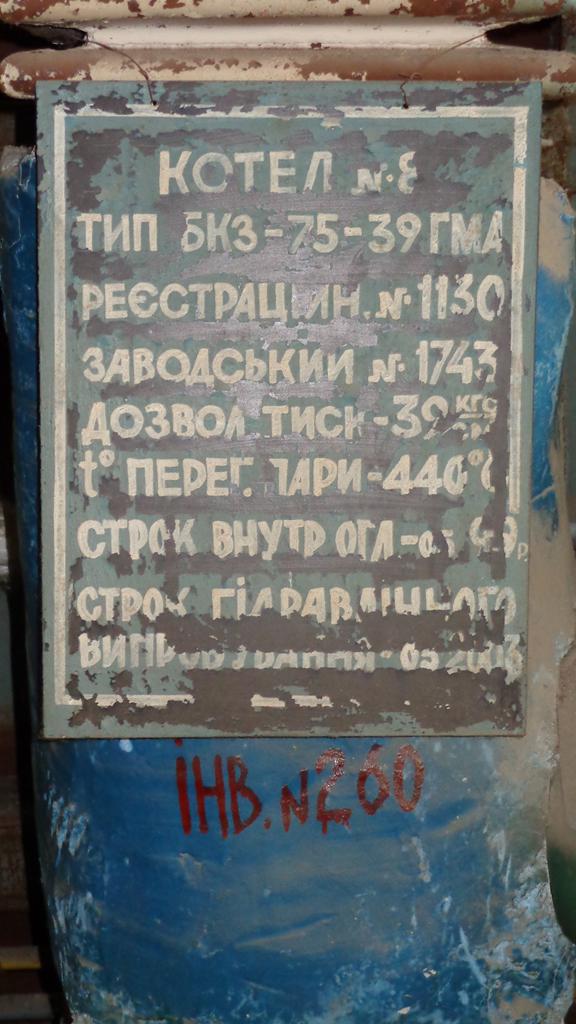 КОТЕЛ №.8
ТИП БКЗ-75-39 ГМА
РЕЄСТРАЦІЙН. №. 1130
ЗАВОДСЬКИЙ №. 1743
ДОЗВОЛ. ТИСК-39 кгс
t° ПЕРЕГ. ПАРИ-440°С
СТРОК ВНУТР ОГЛ-
СТРОК ГІДРАВЛІЧНОГО
ВИПРОБУВАННЯ-
ІНВ. N 260